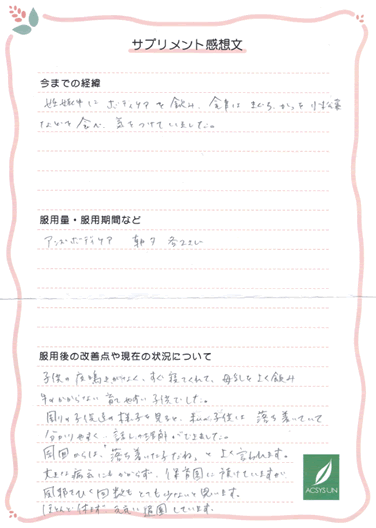 サプリメント感想文
今までの経緯
妊娠中に ボディケア を飲み、食事は まぐろ、かつを 小松菜
などを食べ、気をつけていました。
服用量・服用期間など
アシスボディケア 朝夕 各2さじ
服用後の改善点や現在の状況について
子供の 夜鳴きがなく、すぐ寝てくれて、母乳をよく飲み
手がかからない 育てやすい子供でした。
周りの子供達の様子を見ると、私の子供は 落ち着いていて
分かりやすく 話しの理解ができました。
周囲からは、"落ち着いた子だね。" と よく言われます。
大きな病気にもかからず、保育園に預けていますが
風邪をひく回数も とても少ないと思います。
ほとんど休まず 元気に登園しています。
ACSYSUN